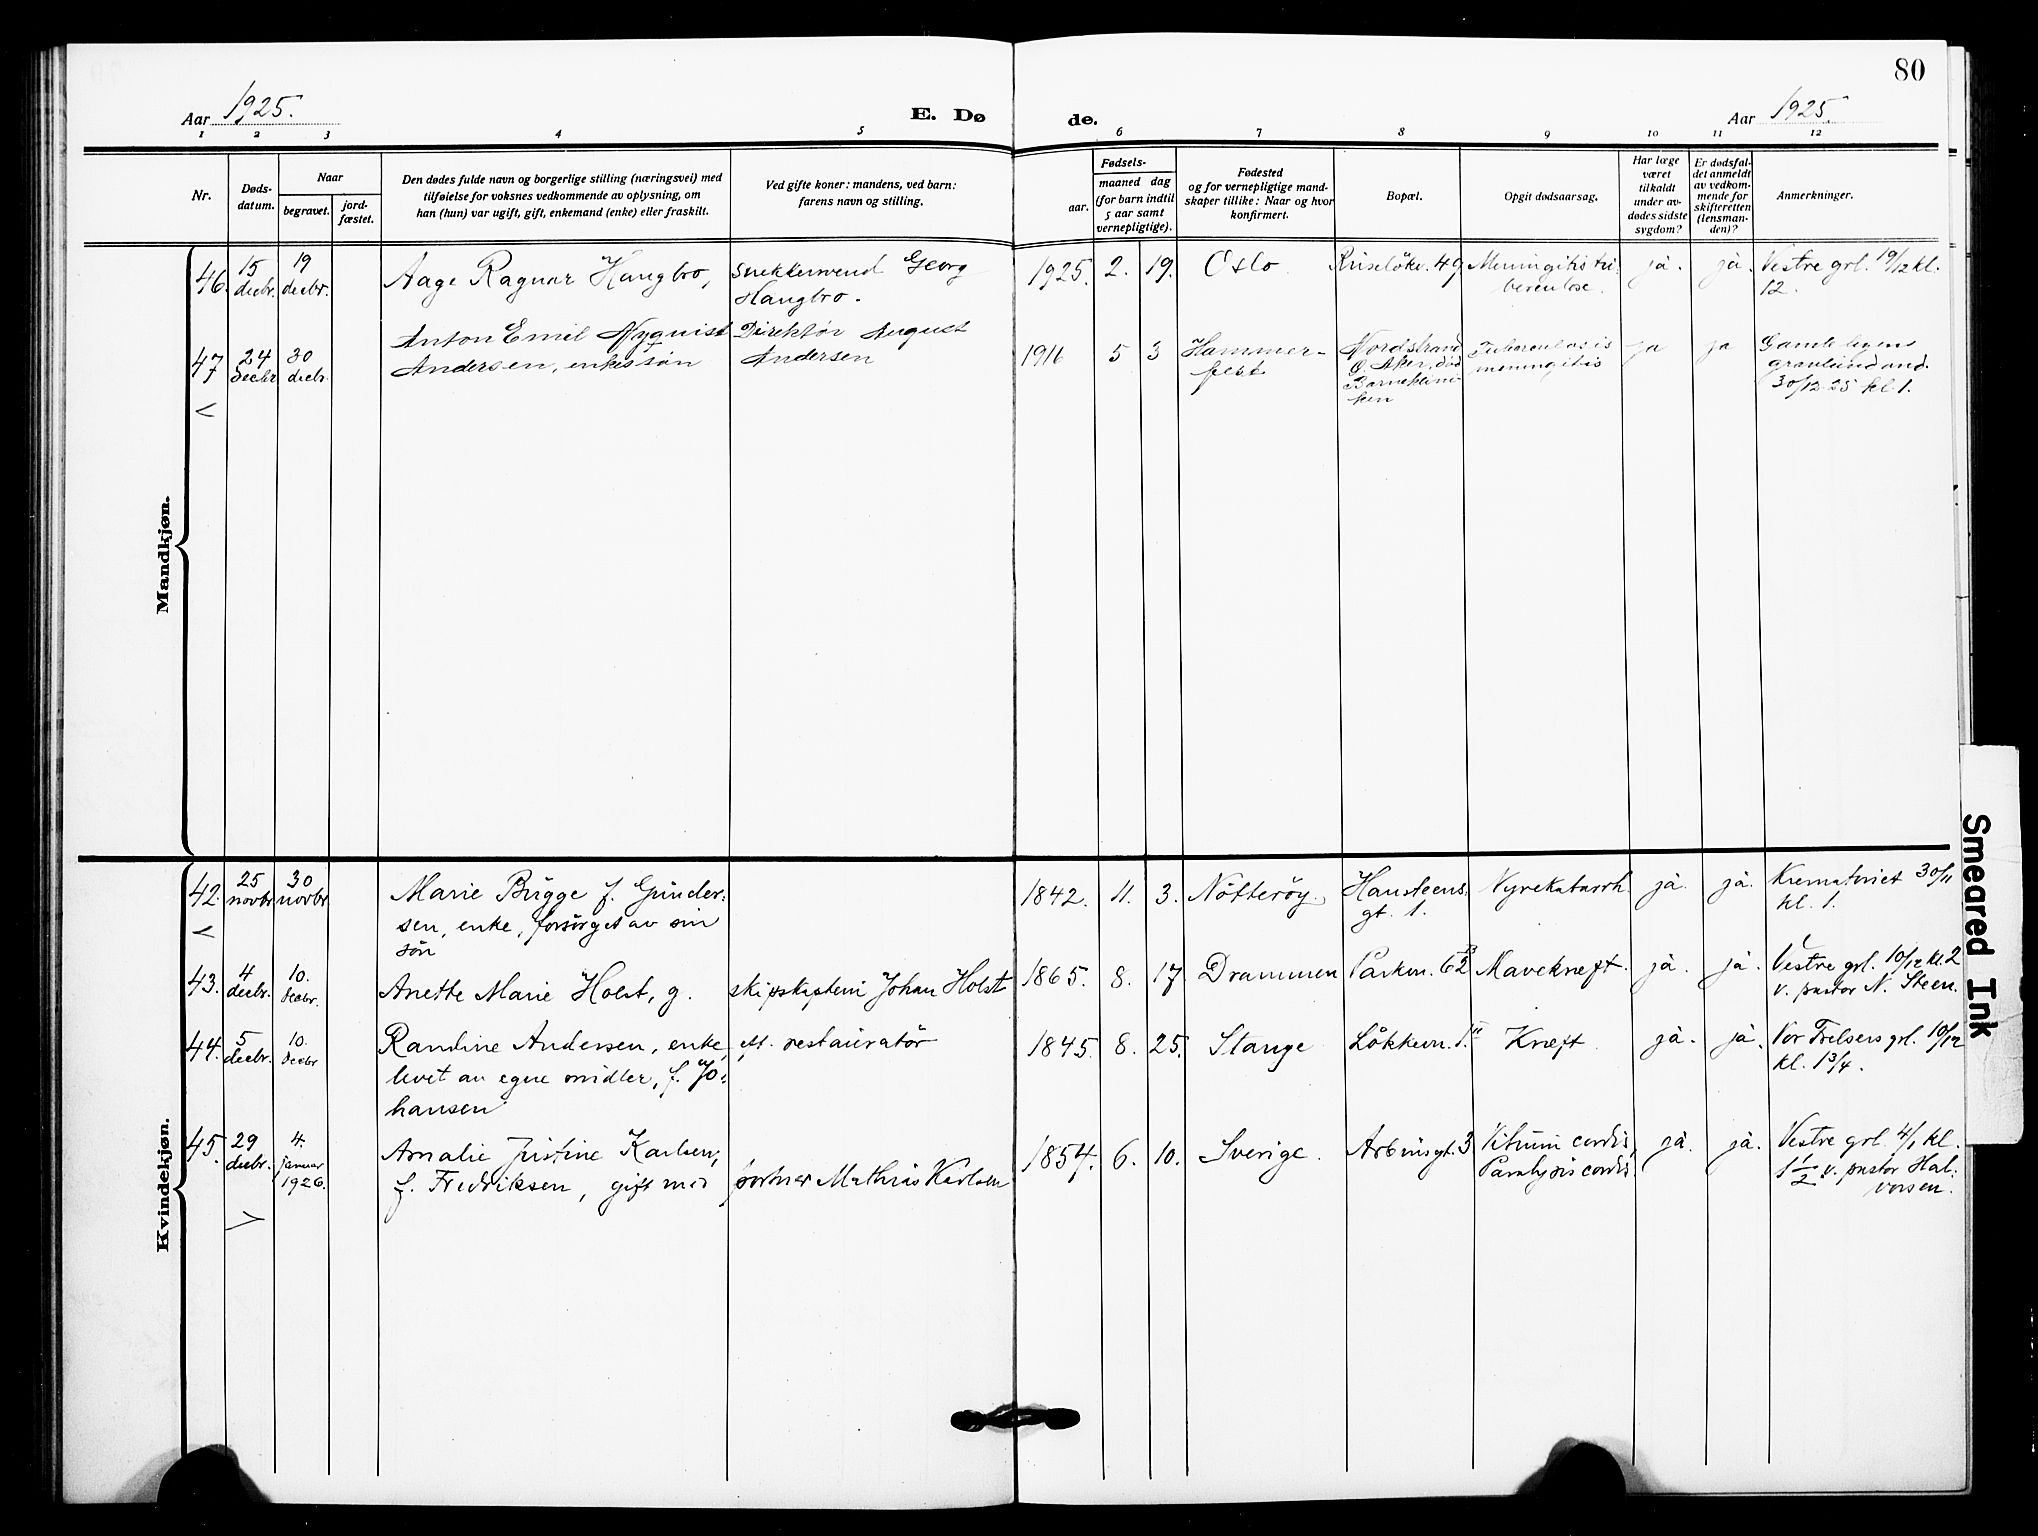 80
Aar 1925.
E. Døde.
Aar 1925.
1 2 3 4 5 6 7 8 9 10 11 12
Nr.
Døds-
datum.
Naar
begravet.
jord-
fæstet.
Den dødes fulde navn og borgerlige stilling (næringsvei) med
tilføielse for voksnes vedkommende av oplysning, om
han (hun) var ugift, gift, enkemand (enke) eller fraskilt.
Ved gifte koner: mandens, ved barn:
farens navn og stilling.
Fødsels-
aar.
maaned dag
(for barn indtil
5 aar samt
vernepligtige).
Fødested
og for vernepligtige mand-
skaper tillike: Naar og hvor
konfirmert.
Bopæl.
Opgit dødsaarsag.
Har læge
været
tilkaldt
under av-
dødes sidste
sygdom?
Er dødsfal-
det anmeldt
av vedkom-
mende for
skifteretten
(lensman-
den)?
Anmerkninger.
Mandkjøn.
46.
15
decbr.
19
decbr.
Aage Ragnar Haugbro,
snekkersvend Georg
Haugbro.
1925. 2. 19.
Oslo.
49
Meningitis tu-
berculose.
ja.
ja.
Vestre grl. 19/12 kl.
12.
47
24
decbr
30
decb.
Anton Emil Nyquist
Andersen, enkes søn
Direktør August
Andersen
1916 5 3
Hammer-
fest
Nordstrand
Ø. Aker, død
Barneklini-
ken
Tuberculosis
meningitis
ja
ja
Gamlebyens
gravlund
30/12-25 kl. 1.
Kvindekjøn.
42.
25
novbr
30
novbr.
Marie Brygge f. Gunder-
sen, enke, forsørget av sin
søn
1842. 11. 3.
Nøtterøy.
Hansteens-
gt. 1.
Nyrekatarrh.
ja.
ja.
Krematoriet 30/11
kl. 1.
43.
4
decbr.
10.
decbr.
Anette Marie Holst, g.
skipskaptein Johan Holst
1865. 8. 17.
Drammen
Parkvn. 62
Mavekræft.
ja.
ja.
Vestre grl. 10/12 kl. 2
v. pastor N. Steen.
44.
5
decbr.
10.
decbr
Randine Andersen, enke
levet av egne midler, f. Jo-
hansen
eft. restauratør
1845. 8. 25.
Stange
Løkkevn. 1.
Kræft.
ja.
ja.
Vor Frelsers grl. 10/12
kl. 1 3/4.
45.
29
decbr.
4.
januar
1926.
Amalie Justine Karlsen,
f. Fredriksen, gift med
portner Mathias Karlsen
1854. 6. 10.
Sverige.
Arbinsgt. 3
Vitium cordis,
Paralysis cordis.
ja.
ja.
Vestre grl. 4/1 kl.
1 1/2 v. pastor Hal-
vorsen.
Smeared Ink